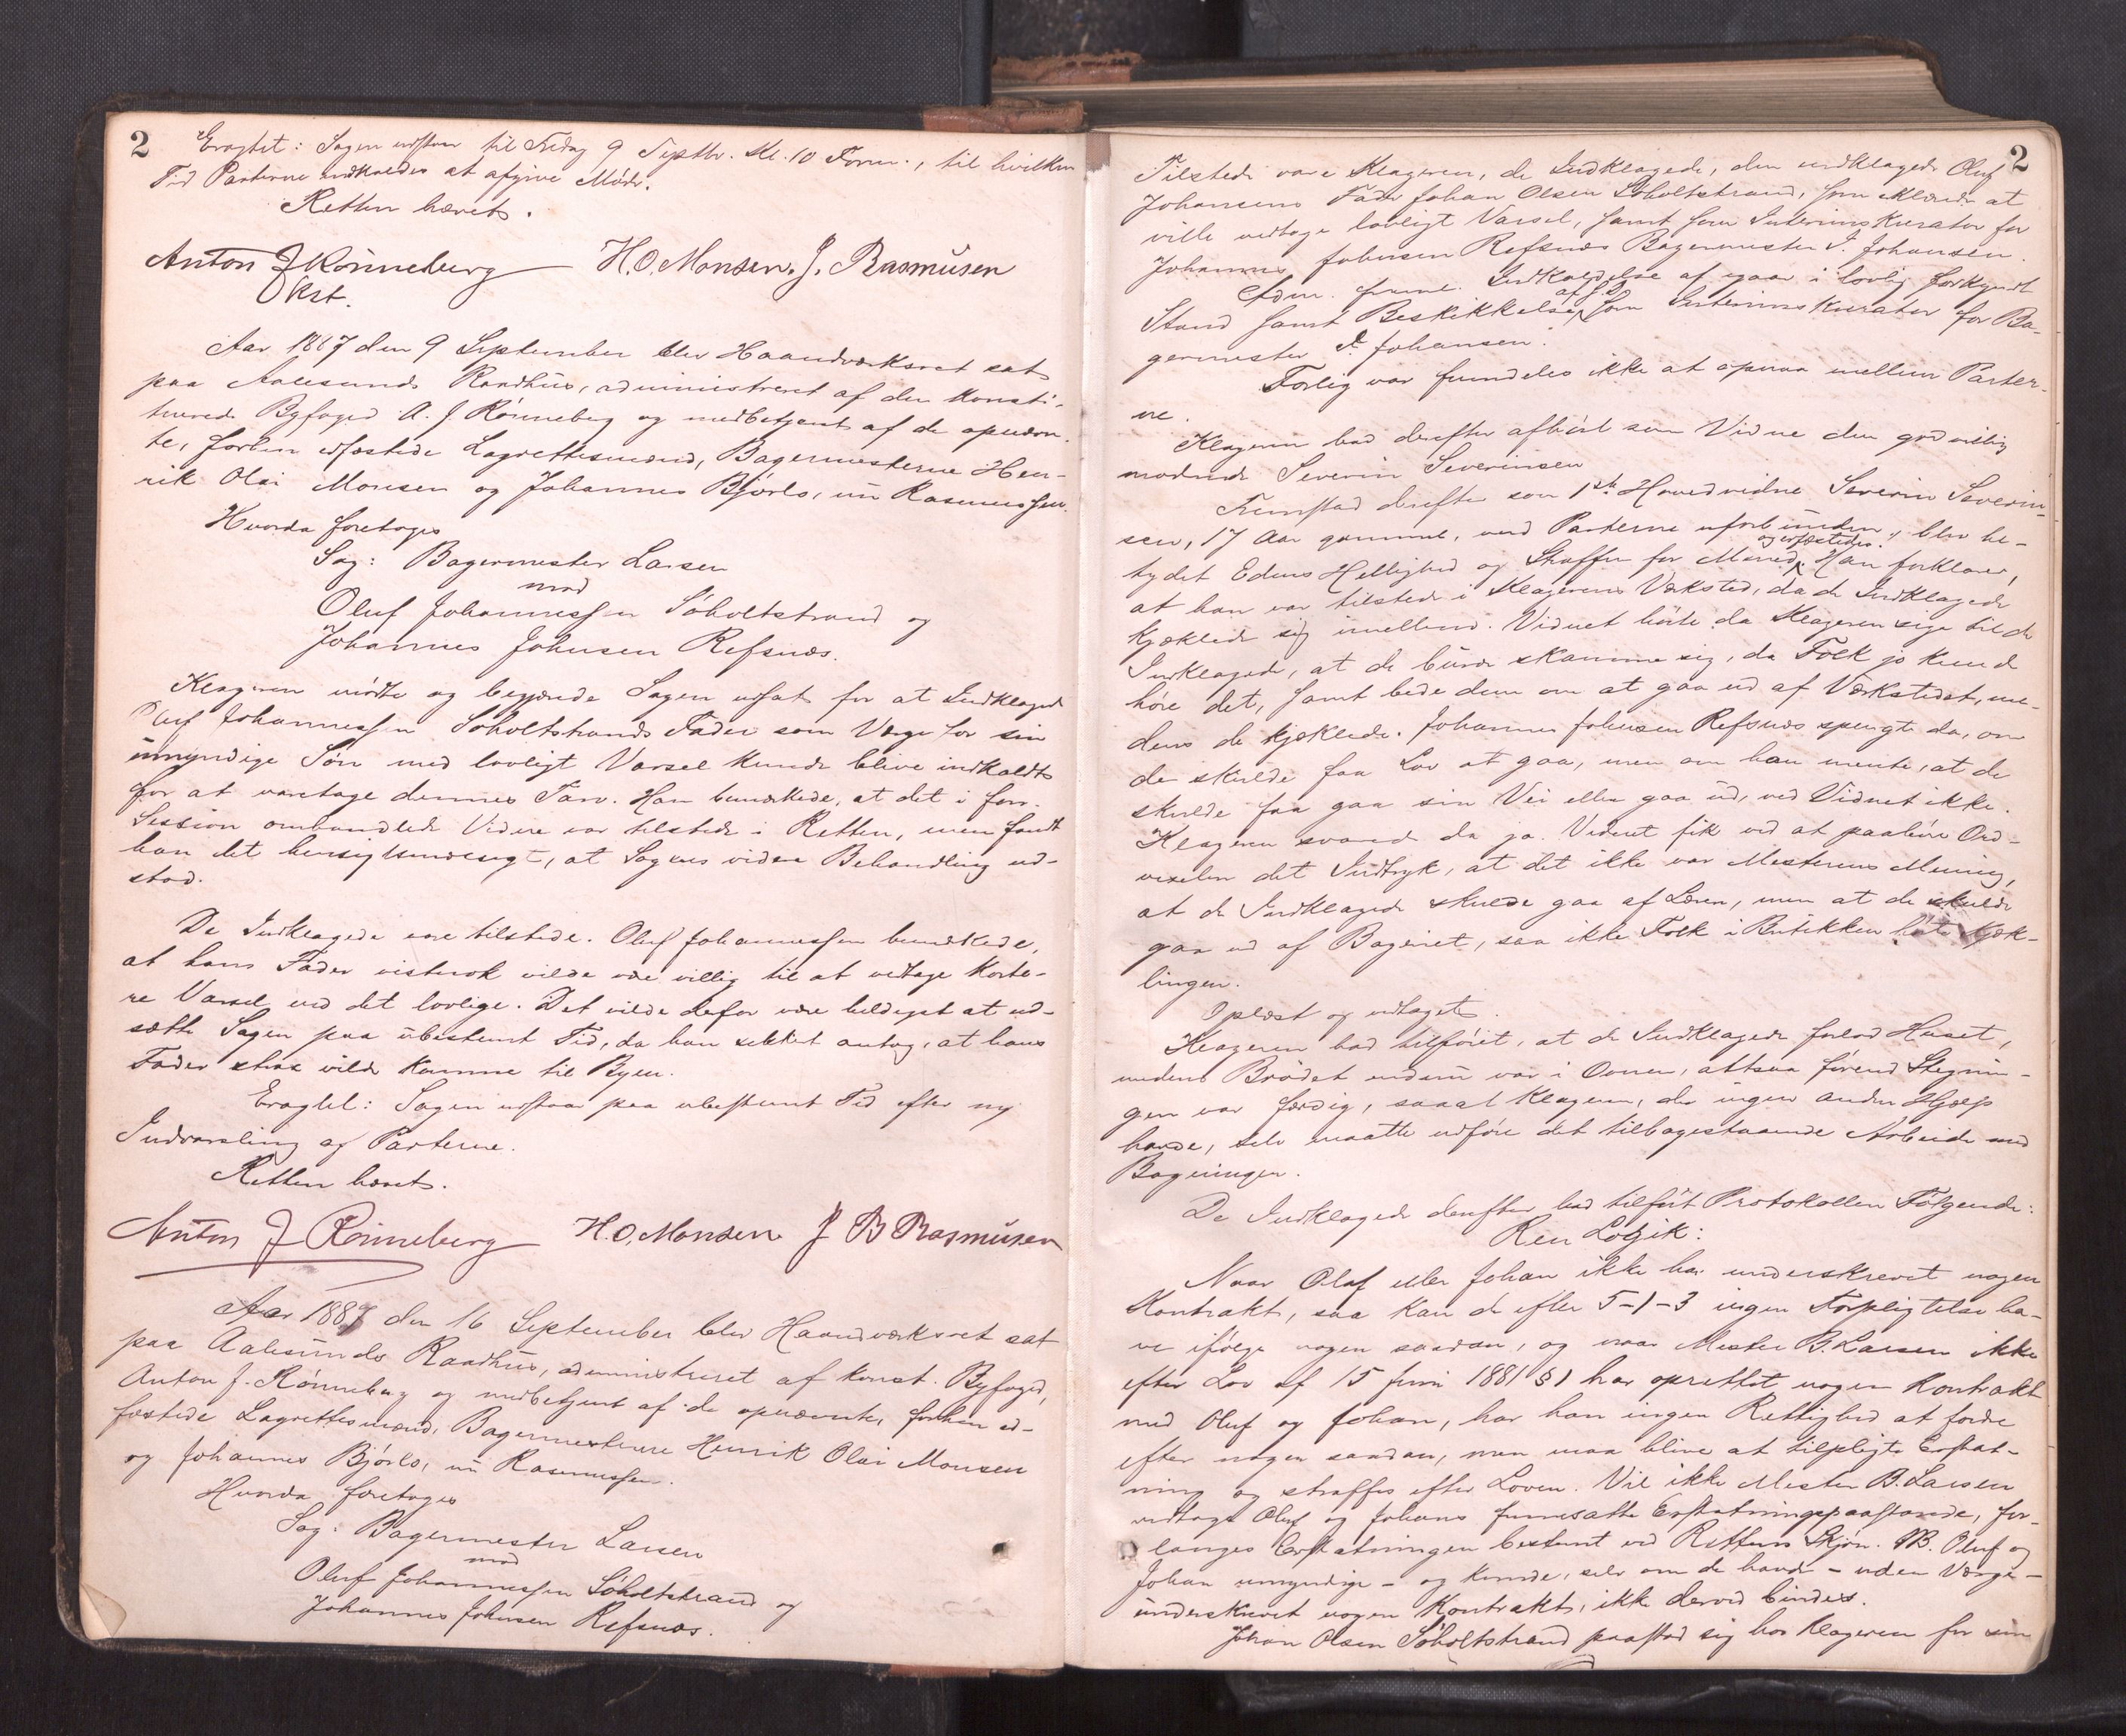 2
Eragtet: Sagen udstaar til Fredag 9 Septbr. Kl. 10 Form., til hvilken
Tid Parterne indkaldes at afgive Møde.
Retten hævet.
Anton J Rönneberg H. O. Monsen. J. Rasmüsen
Kst.
Aar 1887 den 9 September blev Haandværksret sat
paa Aalesunds Raadhüs, administreret af den Konsti-
tuerede Byfoged A. J Rönneberg og medbetjent af de opnævn-
te, forhen edfæstede Lagrettesmænd, Bagermesterne Hen-
rik Olai Monsen og Johannes Bjørlo, nü Rasmussen.
Hvorda foretoges
Sag: Bagermester Larsen
mod
Oluf Johannessen Söholtstrand og
Johannes Johnsen Refsnæs.
Klageren mødte og begjærede Sagen udsat for at Indklagede
Oluf Johannessen Söholtstrands Fader som Værge for sin
ümyndige Sön med lovligt Varsel kunde blive indkaldt
for at varetage dennes Tarv. Han bemærkede, at det i forr.
Session omhandlede Vidne var tilstede i Retten, men fandt
han det hensigtsmæssigt, at Sagens videre Behandling ud-
stod.
De Indklagede vare tilstede. Oluf Johannessen bemærkede,
at hans Fader vistnok vilde være villig til at vedtage korte-
re Varsel end det lovlige. Det vilde derfor være heldigst at ud-
sætte Sagen paa übestemt Tid, da han sikkert antog, at hans
Fader strax vilde komme til Byen.
Eragtet: Sagen udstaar paa ubestemt Tid efter ny
Indvarsling af Parterne.
Retten hævet.
Anton J Rönneberg H. O. Monsen J B Rasmüsen
Aar 1887 den 16 September blev Haandværksret sat
paa Aalesunds Raadhüs, administreret af konst. Byfoged,
Anton J. Rönneberg og medbetjent af de opnævnte, forhen ed-
fæstede Lagrettesmænd, Bagermesterne Henrik Olai Monsen
og Johannes Bjørlo, nü Rasmussen.
Hvorda foretoges
Sag: Bagermester Larsen
mod
Oluf Johannessen Söholtstrand og
Johannes Johnsen Refsnæs.
2
Tilstede vare Klageren, de Indklagede, den indklagede Oluf
Johansens Fader Johan Olsen Söholtstrand, som erklærede at
ville vedtage lovligt Varsel, samt som Interimskurator for
Johannes Johnsen Refsnæs Bagermester P. Johansen.
Adm. freml. Indkaldelse af igaar i lovlig forkyndt
Stand samt Beskikkelse af s. D. som Interimskurator for Ba-
germester P. Johansen.
Forlig var fremdeles ikke at opnaa mellem Parter-
ne.
Klageren bad derefter afhört som Vidne den godvillig
mødende Severin Severinsen
Fremstod derefter som 1ste Hovedvidne Severin Severin-
sen, 17 Aar gammel, med Parterne uforbunden, blev be-
tydet Edens Hellighed og Straffen for Mened og edfæstedes. Han forklarer,
at han var tilstede i Klagerens Værksted, da de Indklagede
kjæklede sig imellem. Vidnet hörte da Klageren sige til de
Indklagede, at de bürde skamme sig, da Folk jo kunde
höre det, samt bede dem om at gaa ud af Værkstedet, me-
dens de kjæklede. Johannes Johnsen Refsnæs spurgte da, om
de skulde faa Lov at gaa, men om han mente, at de
skulde faa gaa sin Vei eller gaa üd, ved Vidnet ikke.
Klageren svarede da ja. Vidnet fik ved at paahöre Ord-
vexelen det Indtryk, at det ikke var Mesterens Mening,
at de Indklagede skulde gaa af Læren, men at de skulde
gaa ud af Bageriet, saa ikke Folk i Butikken hörte Kjæk-
lingen.
Oplæst og vedtaget.
Klageren bad tilföiet, at de Indklagede forlod Huset,
medens Brödet endnü var i Ovnen, altsaa förend Stegnin-
gen var færdig, saaat Klageren, der ingen anden Hjælp
havde, selv maatte udføre det tilbagestaaende Arbeide med
Bagningen.
De Indklagede derefter bad tilført Protokollen Fölgende:
Ren Logik:
Naar Oluf eller Johan ikke har underskrevet nogen
Kontrakt, saa kan de efter 5-1-3 ingen Forpligtelse ha-
ve ifölge nogen saadan, og naar Mester B. Larsen ikke
efter Lov af 15 Juni 1881 § 1 har oprettet nogen Kontrakt
med Oluf og Johan, har han ingen Rettighed at fordre
efter nogen saadan, men maa blive at tilpligte Erstat-
ning og straffes efter Loven. Vil ikke Mester B. Larsen
vedtage Oluf og Johans fremsatte Erstatningspaastande, for-
langes Erstatningen bestemt ved Rettens Skjön. NB. Oluf og
Johan umyndige - og kunde, selv om de havde - uden Værge -
ünderskrevet nogen Kontrakt, ikke derved bindes.
Johan Olsen Söholtstrand paastod sig hos Klageren for sin